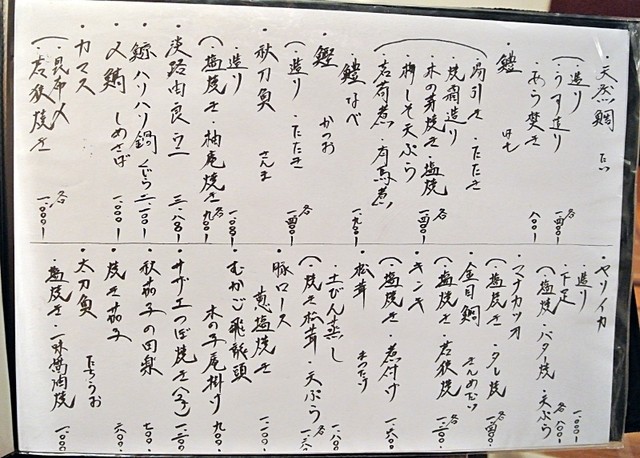 ・天然鯛 たい
・造り
・うす造り 各一、四〇〇
・あら焚き 八〇〇
・鱧 はも
・湯引き・たたき
・焼霜造り
・木の芽焼き・塩焼 各一、四〇〇
・梅しそ天ぷら
・若荷煮・有馬煮
・鱧なべ 一、九〇〇
・鰹 かつお
・造り・たたき 各一、四〇〇
・秋刀魚 さんま
・造り 一、〇八〇
・塩焼き・柚庵焼き 各九〇〇
淡路由良ウニ 三、八〇〇
鯨ハリハリ鍋 くじら 二、一〇〇
〆鯖 しめさば 一、〇〇〇
・カマス
・昆布〆
・若狭焼き 各一、〇〇〇
・ヤリイカ
・造り 一、〇〇〇
・下足
・塩焼・バター焼・天ぷら 各八〇〇
・マナカツオ
・塩焼き・タレ焼 各一、四〇〇
・金目鯛 きんめだい
・塩焼き・若狭焼 各一、二〇〇
・キンキ
・塩焼き・煮付け 一、六〇〇
・松茸 まつたけ
・土びん蒸し 一、八〇〇
・焼き松茸・天ぷら 各一、六〇〇
・豚ロース
黄塩焼き 一、一〇〇
・むかご飛龍頭
木の子庵掛け 九〇〇
・サザエつぼ焼き 一、二〇〇
・秋茄子の田楽 七〇〇
・焼き茄子 六〇〇
・太刀魚 たちうお
・塩焼き・一味醤油焼 一、〇〇〇